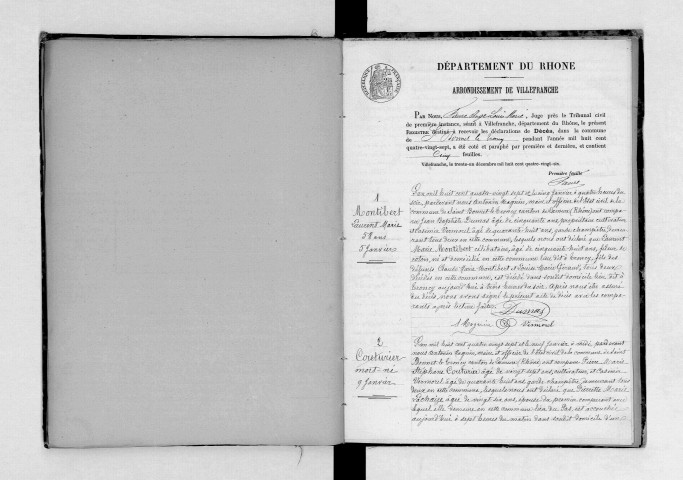 DÉPARTEMENT DU RHONE
ARRONDISSEMENT DE VILLEFRANCHE
PAR NOUS, Juge près le Tribunal civil
de première instance, séant à Villefranche, département du Rhône, le présent
REGISTRE destiné à recevoir les déclarations de Décès, dans la commune
de St Bonnet le Troncy pendant l'année mil huit cent
quatre-vingt-sept, a été coté et paraphé par première et dernière, et contient
Cinq feuilles.
Villefranche, le trente-un décembre mil huit cent quatre-vingt-six.
Première feuille
Faure
1
Montibert
Laurent Marie
58 ans
5 Janvier
L'an mil huit cent quatre vingt sept et le cinq janvier à quatre heures du
soir, pardevant nous Antoine Magnin, maire et officier de l'état civil de la
commune de Saint Bonnet le Troncy canton de Lamure (Rhône) ont comparu
Jean Baptiste Dumas âgé de cinquante ans, propriétaire cultivateur
et Casimir Vermorel âgé de quarante huit ans, garde champêtre, demeurant
tous deux en cette commune, lesquels nous ont déclaré que Laurent
Marie Montibert célibataire, âgé de cinquante huit ans, fileur de
coton, né et domicilié en cette commune lieu dit à Troncy, fils des
défunts Claude Marie Montibert et Louise Marie Giraud, tous deux
décédés en cette commune, est décédé dans son dit domicile lieu dit à
Troncy aujourd'hui à trois heures du soir. Après nous être assuré
du décès, nous avons signé le présent acte de décès avec les comparants
après lecture faite.
Dumas
A Magnin Vermorel
2
Couturier
mort-né
9 Janvier
L'an mil huit cent quatre vingt sept et le neuf janvier à midi, pardevant
nous Antoine Magnin, maire et officier de l'état civil de la commune de Saint
Bonnet le Troncy canton de Lamure (Rhône) ont comparu Pierre Marie
Stéphane Couturier âgé de vingt sept ans, cultivateur, et Casimir
Vermorel âgé de quarante huit ans garde champêtre, demeurant tous
deux en cette commune, lesquels nous ont déclaré que Pierrette Marie
âgée de vingt six ans, épouse du premier comparant avec
lequel elle demeure en cette commune lieu du Pas, est accouchée
aujourd'hui à sept heures du matin dans son dit domicile d'un